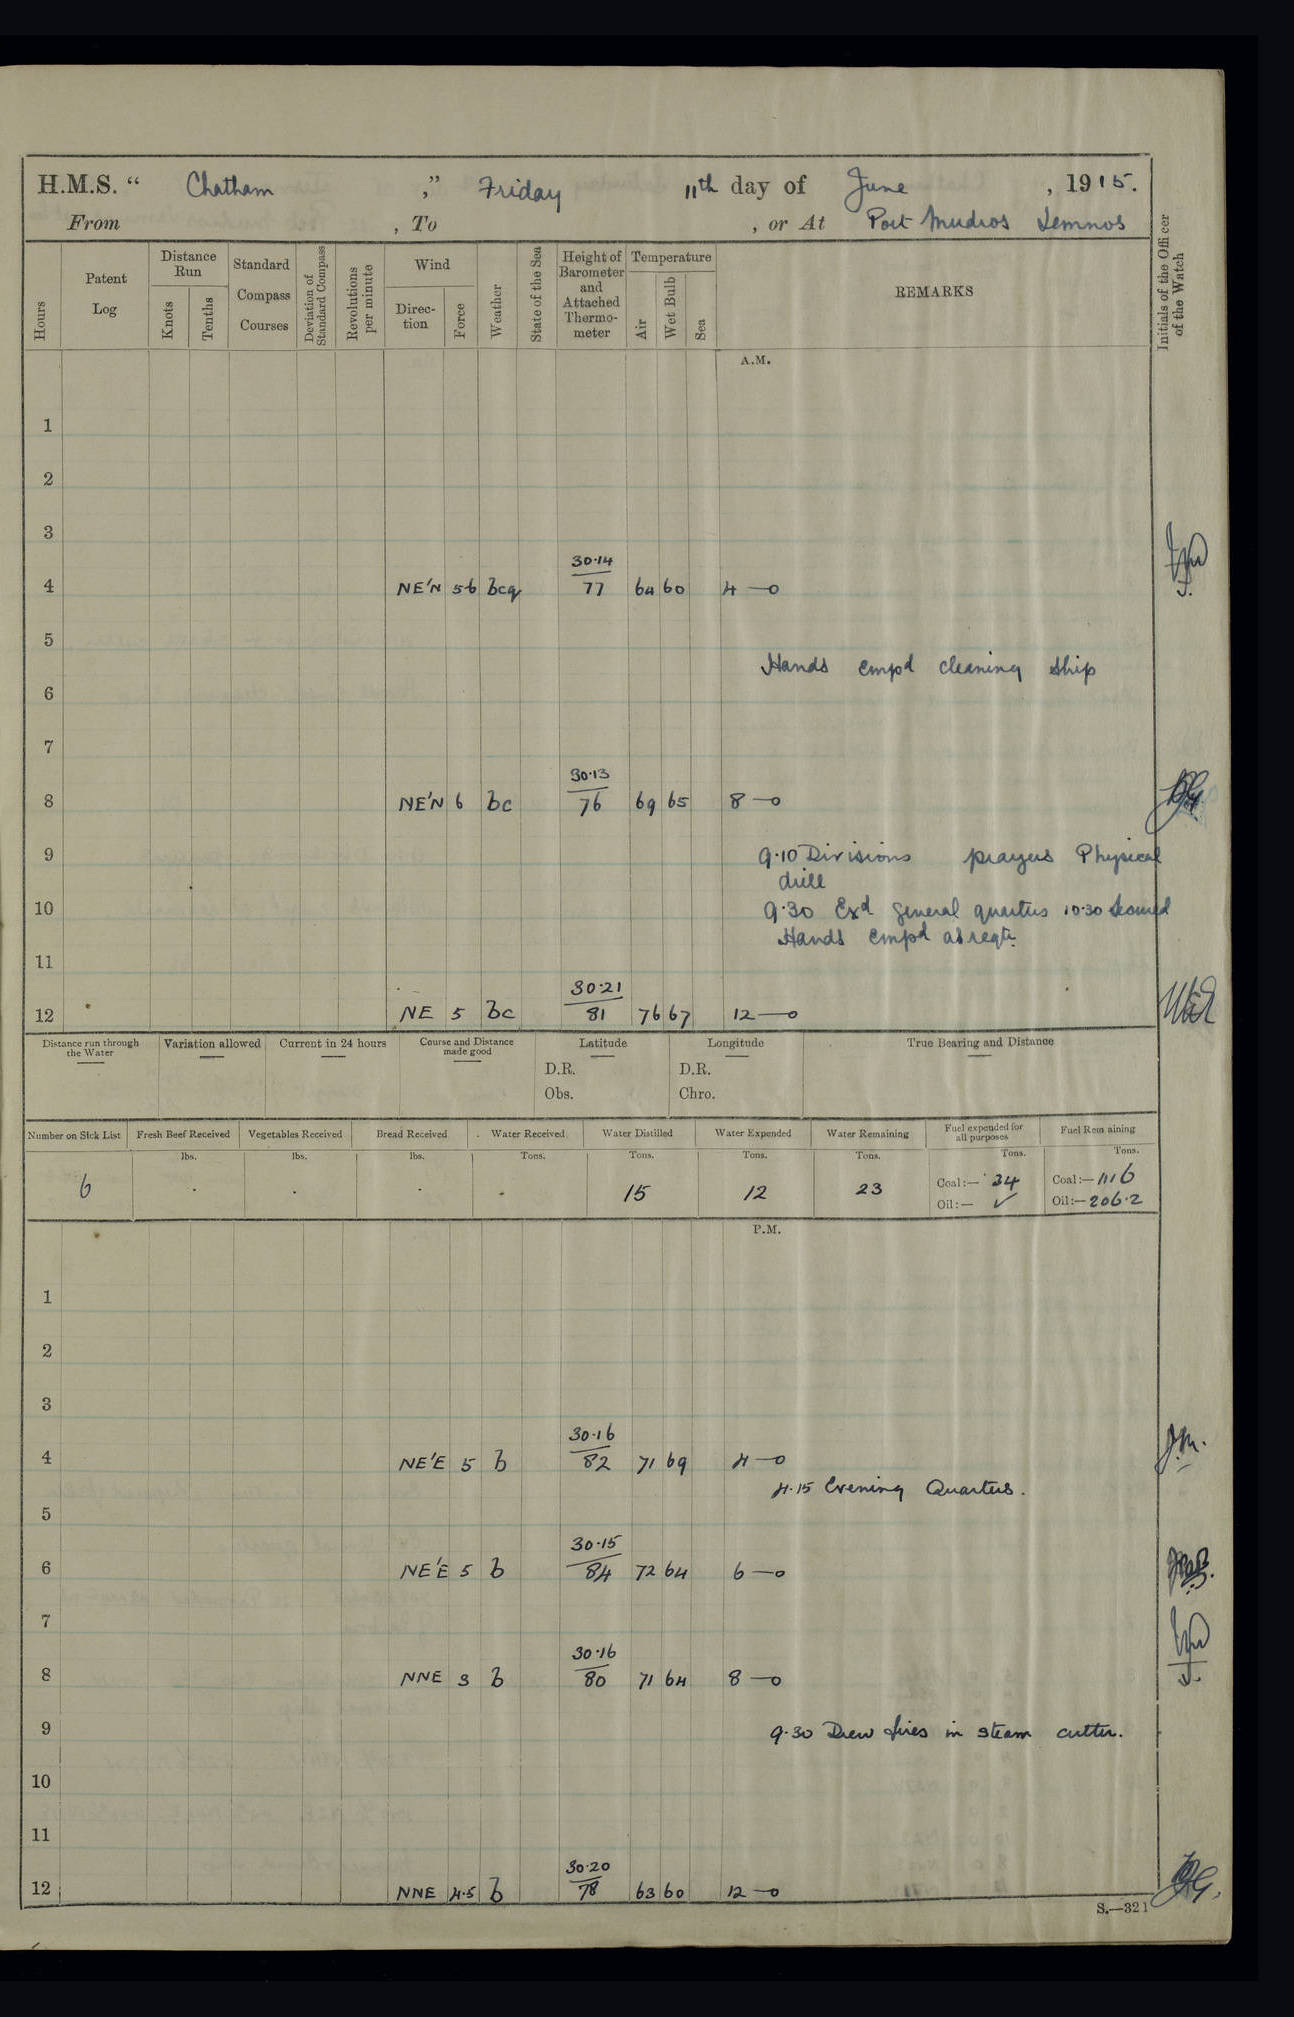 H.M.S. “ Chatham ,” Friday 11th day of June , 1915.
From , To , or At Port Mudros Lemnos
Hours
Patent Log
Distance Run
Knots
Tenths
Standard Compass Courses
Deviation of Standard Compass
Revolutions per minute
Wind
Direc-tion
Force
Weather
State of the Sea
Height of Barometer and Attached Thermo-meter
Temperature
Air
Wet Bulb
Sea
REMARKS
Initials of the Officer of the Watch
A.M.
1
2
3
30·14
4 NE'N 5·6 bcq 77 64 60 4 —o
5
Hands empd cleaning ship
6
7
30·13
8 NE'N 6 bc 76 69 65 8 —o
9 9·10 Divisions prayers Physical
drill
10 9·30 Exd general quarters 10·30 Secured
Hands empd as reqte.
11
30·21
12 NE 5 bc 81 76 67 12 —o
Distance run through the Water
Variation allowed
Current in 24 hours
Course and Distance made good
Latitude
Longitude
True Bearing and Distance
D.R. D.R.
Obs. Chro.
Number on Sick List Fresh Beef Received Vegetables Received Bread Received Water Received Water Distilled Water Expended Water Remaining Fuel expended for all purposes Fuel Remaining
lbs. lbs. lbs. Tons. Tons. Tons. Tons. Tons. Tons.
6 · · · · 15 12 23 Coal:— 34 Coal:— 1116
Oil:— ✓ Oil:— 206·2
P.M.
1
2
3
30·16
4 NE'E 5 b 82 71 69 4 —o J.M.
4·15 Evening Quarters.
5
30·15
6 NE'E 5 b 84 72 64 6 —o
7
30·16
8 NNE 3 b 80 71 64 8 —o
9 9·30 Drew fires in steam cutter.
10
11
30·20
12 NNE 4·5 b 78 63 60 12 —o
S.—321